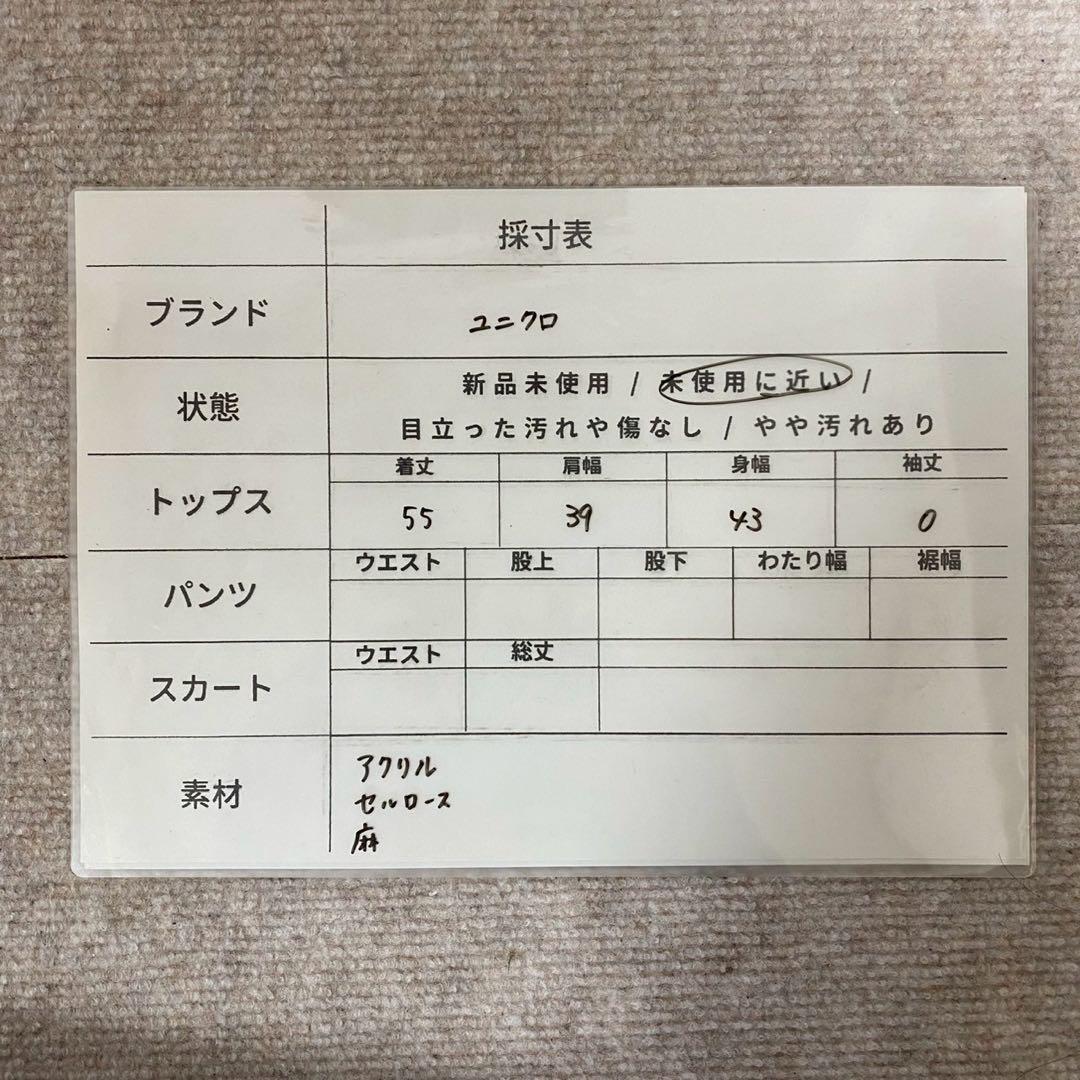 採寸表
ブランド ユニクロ
状態 新品未使用 / 未使用に近い /
目立った汚れや傷なし / やや汚れあり
トップス 着丈 肩幅 身幅 袖丈
55 39 43 0
パンツ ウエスト 股上 股下 わたり幅 裾幅
スカート ウエスト 総丈
素材 アクリル
セルロース
麻